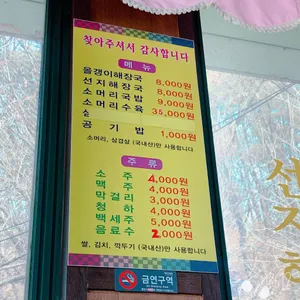 찾아주셔서 감사합니다
메뉴
올갱이해장국 8,000원
선지해장국 8,000원
소머리국밥 9,000원
소머리수육 35,000원
공기밥 1,000원
소머리, 삼겹살 (국내산)만 사용합니다
주류
소주 4,000원
맥주 4,000원
막걸리 3,000원
청하 4,000원
백세주 5,000원
음료수 2,000원
쌀, 김치, 깍두기 (국내산)만 사용합니다
금연구역
선지해